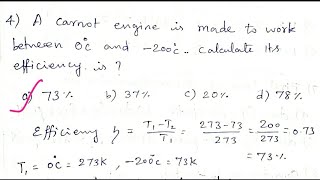 4) A carnot engine is made to work
between 0°c and -200°c. calculate its
efficiency is ?
a) 73% b) 37% c) 20% d) 78%
Efficieny η = T₁-T₂/T₁ = 273-73/273 = 200/273 = 0.73
T₁ = 0°c = 273K, -200°c = 73K = 73%